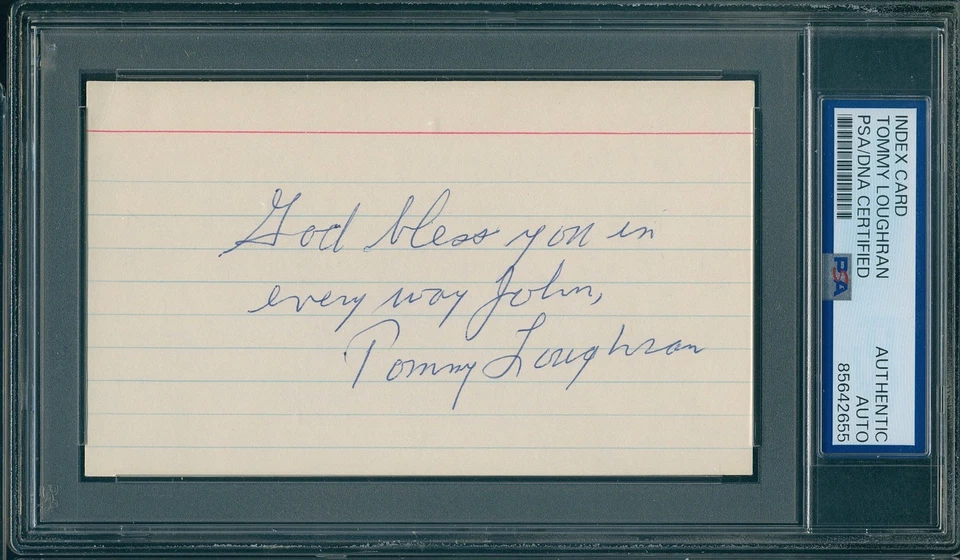 God bless you in
every way John,
Tommy Loughran
INDEX CARD
TOMMY LOUGHRAN
PSA/DNA CERTIFIED
PSA
AUTHENTIC
AUTO
85642655